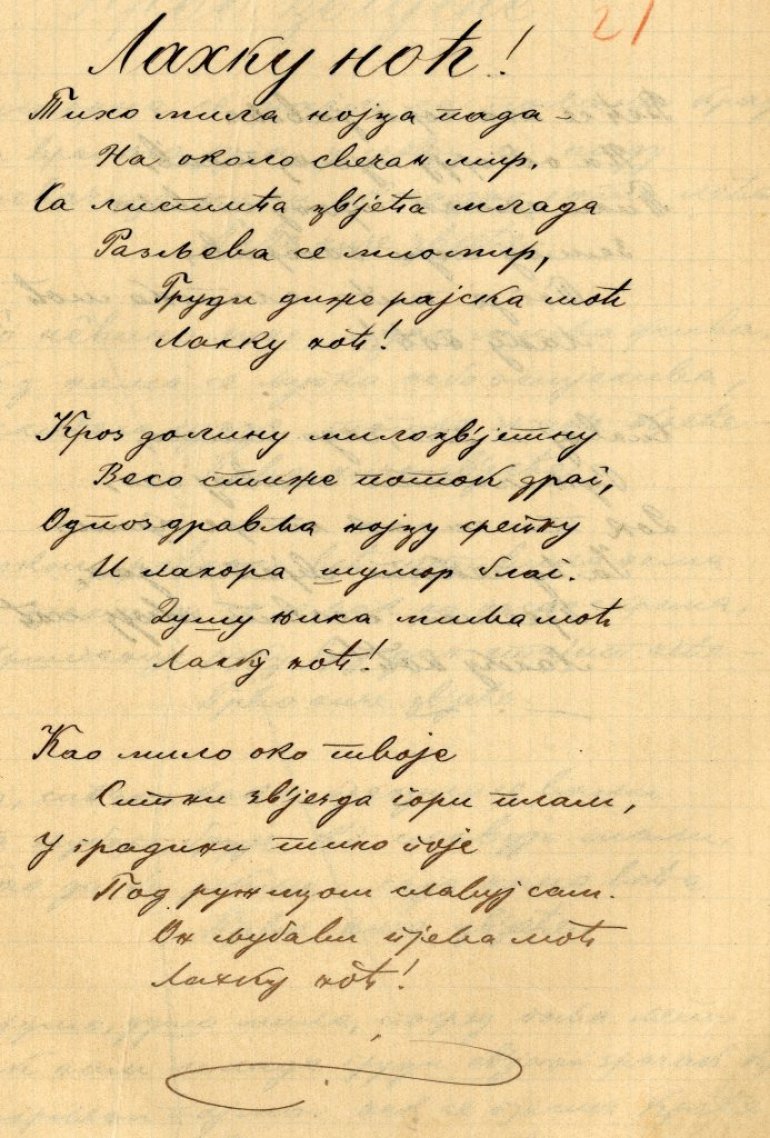 21
Лахку ноћ!
Тихо мила нојца пада –
На около свечан мир,
Са листића цвјећа млада
Разљева се миомир,
Груди диже рајска моћ
Лахку ноћ!
Кроз долину милоцвјетну
Весо стиже поток драг,
Одпоздравља нојцу сретну
И лахора шумор благ.
Душу њиха мила моћ
Лахку ноћ!
Као мило око твоје
Ситни звјезда гори плам,
У градини тихо поје
Под ружицом славуј сам.
Он љубави пјева моћ
Лахку ноћ!